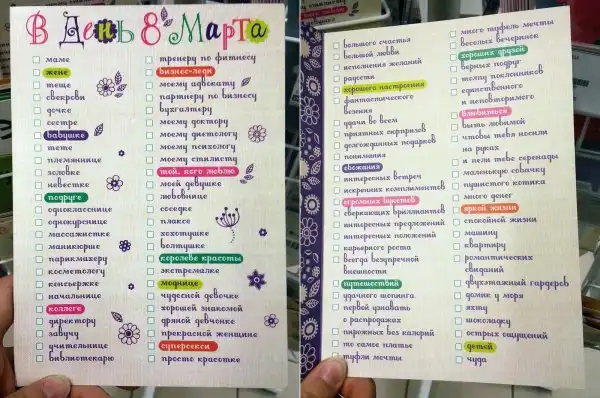 В День 8 Марта
маме
жене
теще
свекрови
дочке
сестре
бабушке
тете
племяннице
золовке
невестке
подруге
однокласснице
однокурснице
массажистке
маникюрше
парикмахеру
косметологу
консьержке
начальнице
коллеге
директору
завучу
учительнице
библиотекарю
тренеру по фитнесу
бизнес-леди
моему адвокату
партнеру по бизнесу
бухгалтеру
моему доктору
моему диетологу
моему психологу
моему стилисту
той, кого люблю
моей девушке
любовнице
соседке
плаксе
хохотушке
болтушке
королеве красоты
экстремалке
моднице
чудесной девочке
хорошей знакомой
дряной девчонке
прекрасной женщине
суперсекси
просто красотке
большого счастья
большой любви
исполнения желаний
радости
хорошего настроения
фантастического
везения
удачи во всем
приятных сюрпризов
долгожданных подарков
понимания
обожания
интересных встреч
искренних комплиментов
огромных букетов
сверкающих бриллиантов
интересных предложений
интересных положений
карьерного роста
всегда безупречной
внешности
путешествий
удачного шопинга
первой узнавать
о распродажах
пирожных без калорий
то самое платье
туфли мечты
много туфель мечты
веселых вечеринок
хороших друзей
верных подруг
толпу поклонников
единственного
и неповторимого
влюбиться
быть любимой
чтобы тебя носили
на руках
и пели тебе серенады
маленькую собачку
пушистого котика
много денег
яркой жизни
спокойной жизни
машину
квартиру
романтических
свиданий
двухэтажный гардероб
домик у моря
яхту
шоколадку
острых ощущений
детей
чуда